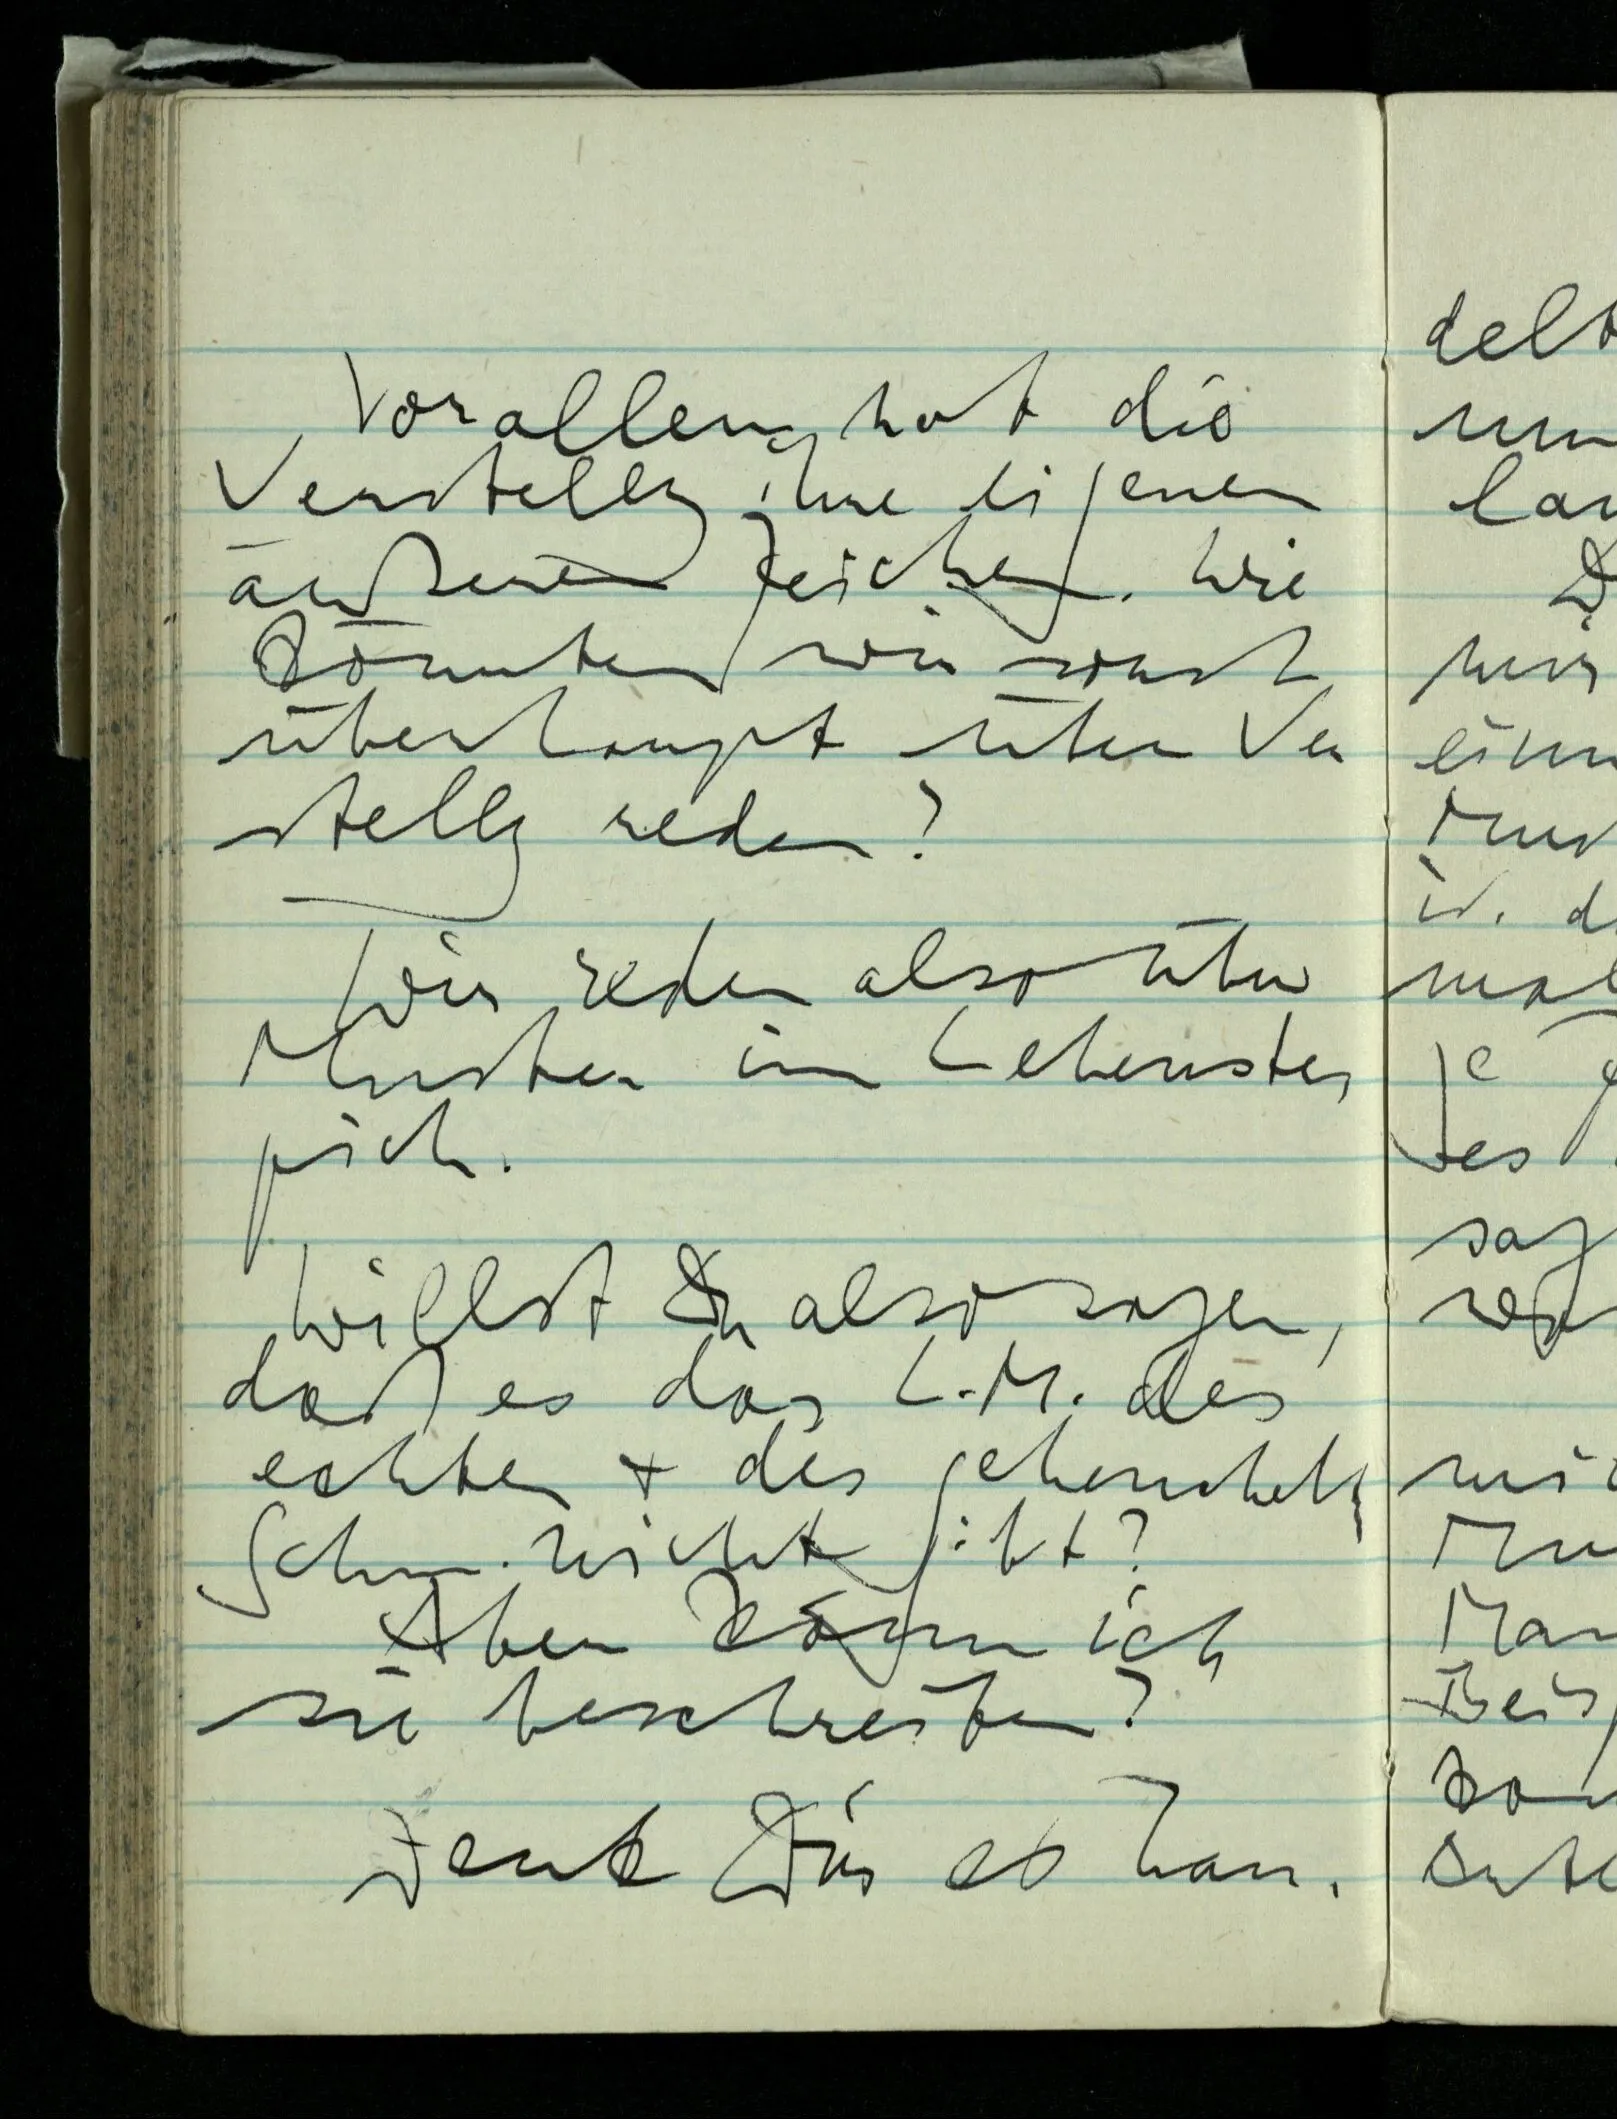 Vor allem hat die
Verstellg ihre eigenen
äußeren Zeichen. Wie
könnten wir sonst
überhaupt über Ver
stellg reden?
Wir reden also über
Muster im Lebenstep
pich.
Willst Du also sagen,
daß es das L.M. des
echten + des geheuchelt
Schm. nicht gibt?
Aber kann ich
sie beschreiben?
Denk Dir es han.
delt
nun
D
mir
einm
Mus
is. d
mal
je
tes
sag
Mu
Man
Beisp